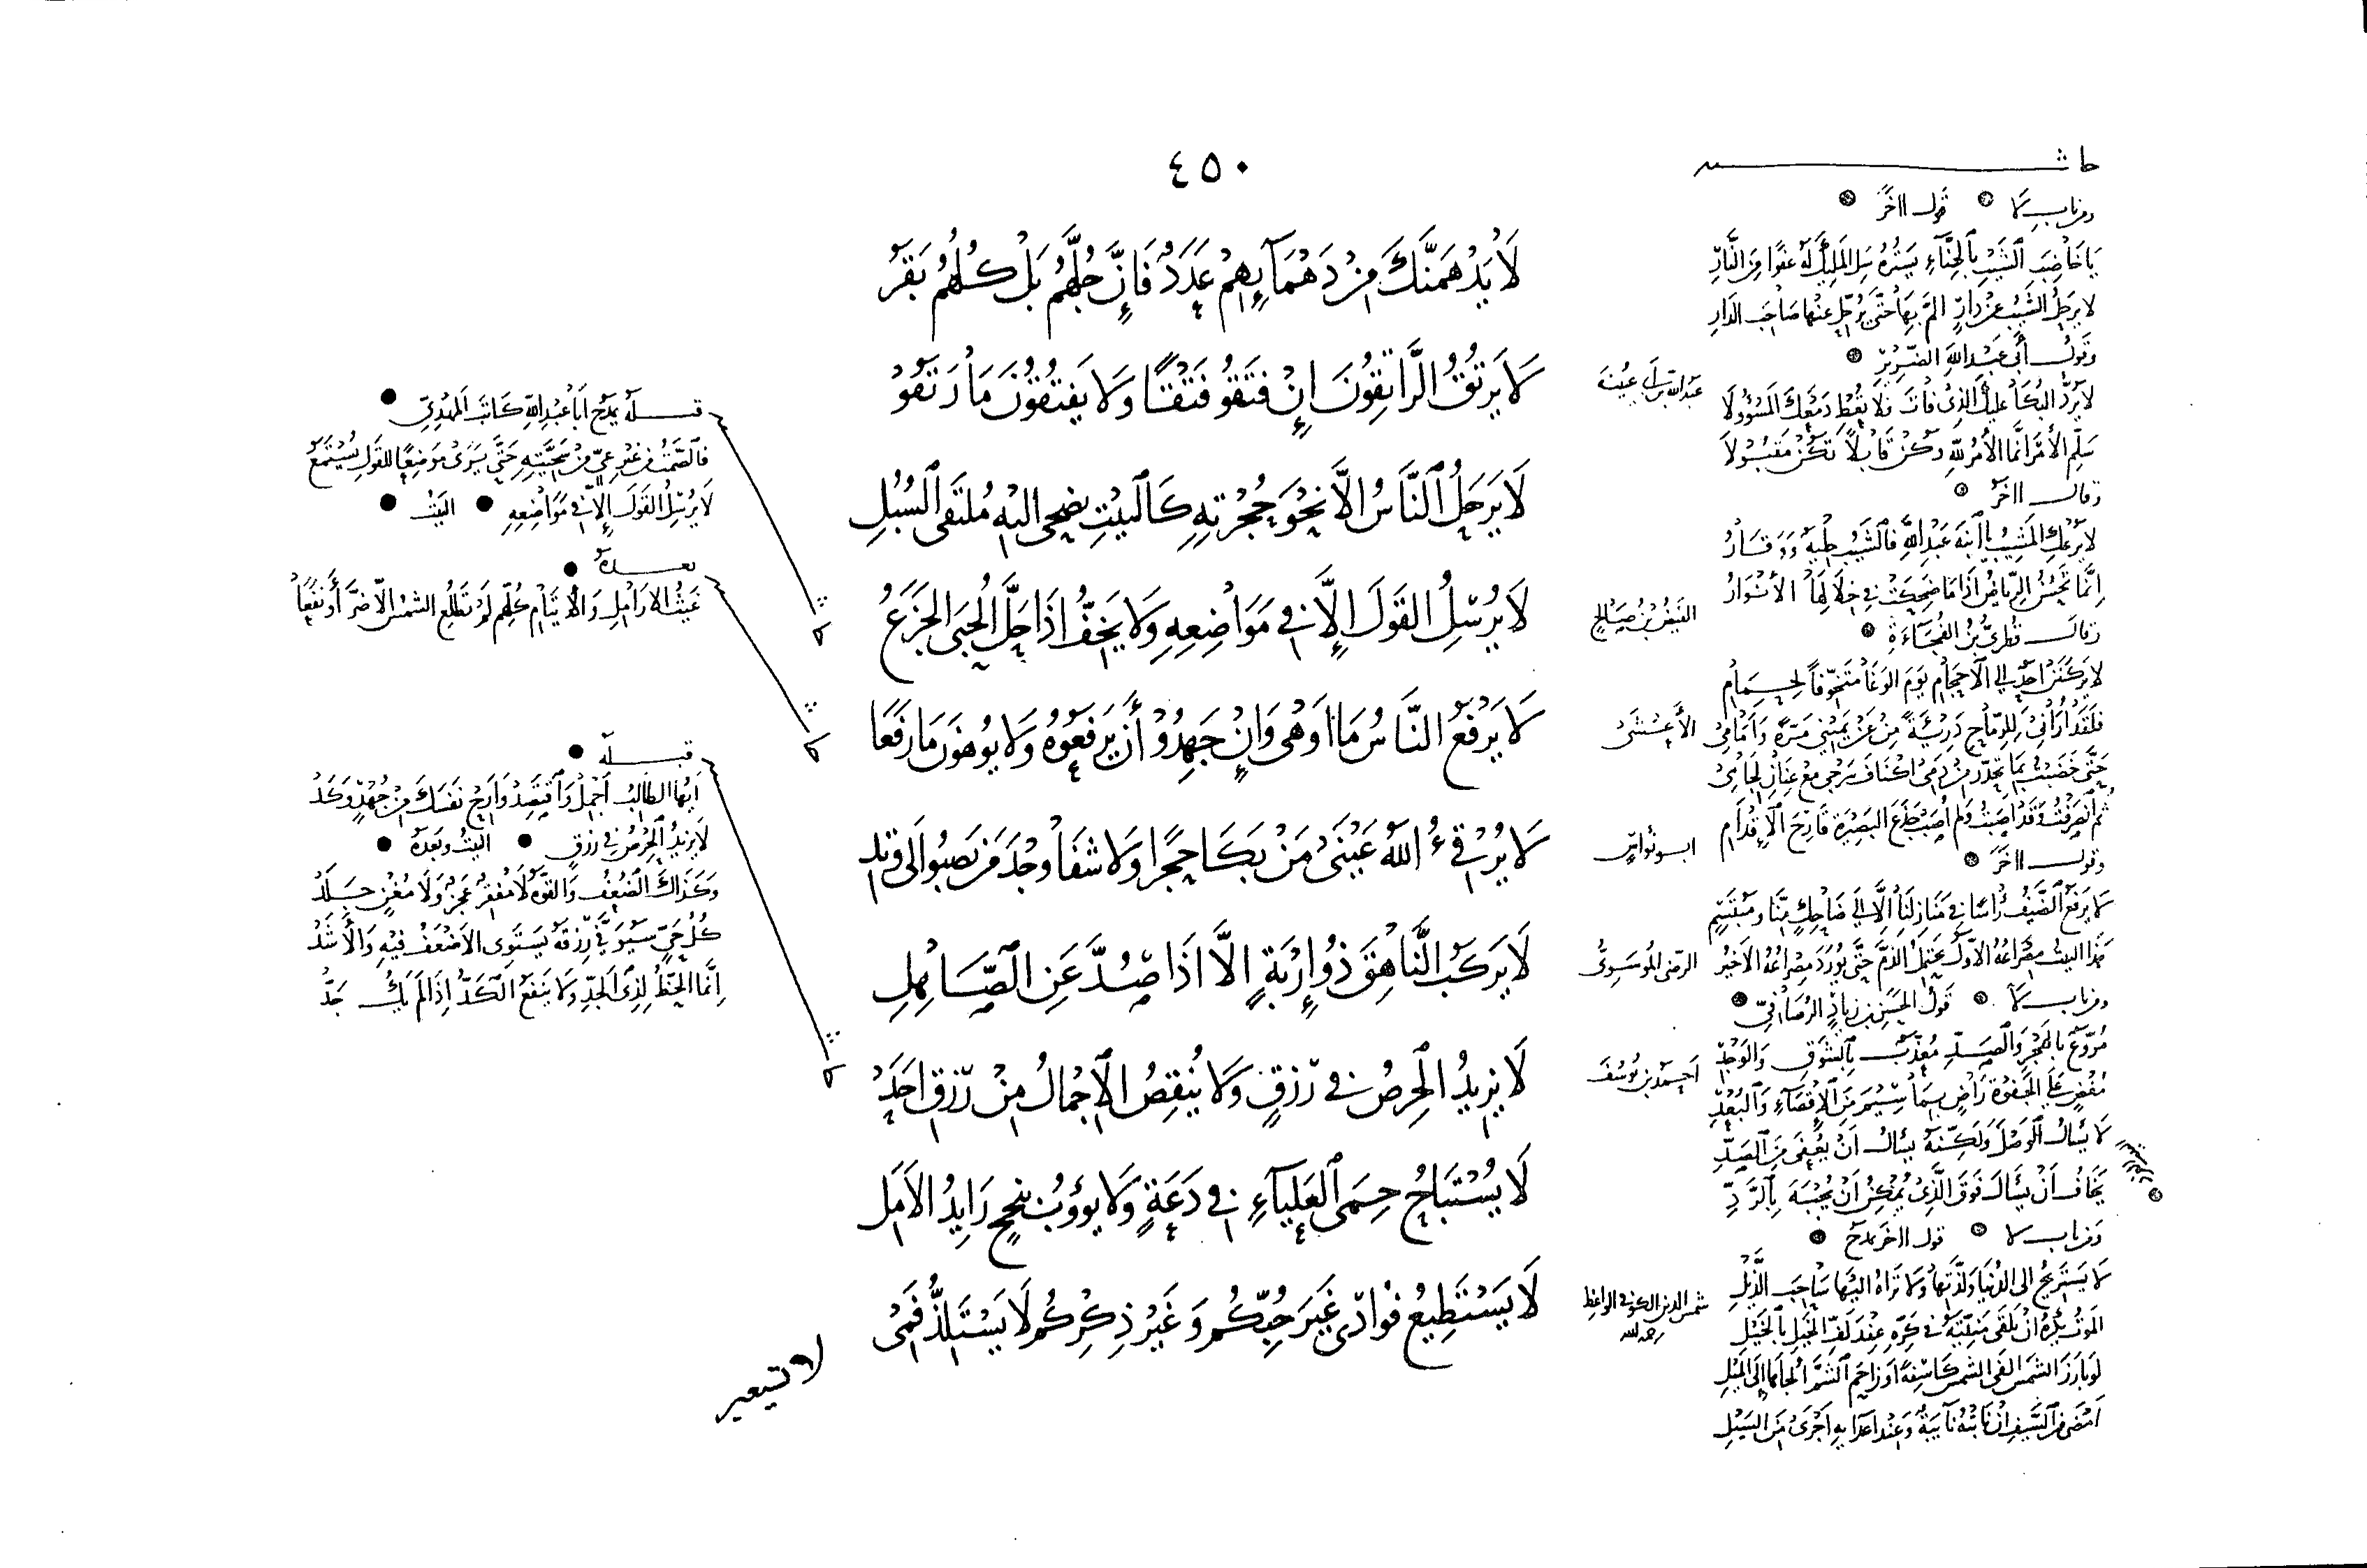 ٤٥٠
لَا يَدْهَمَنَّكَ مِنْ دَهْمَآئِهِمْ عَدَدٌ فَإِنَّ جُلَّهُمْ بَلْ كُلُّهُمْ بَقَرُ
لَا يَرتُقُ الرَّاتِقُونَ إِنْ فَتَقُو فَتْقًا وَلَا يَفتُقُونَ مَا رَتَقُو
عبد الله بن أبي عيينة
لَا يَرحَلُ ٱلنَّاسُ الَّا نَحْوَ حُجْرَتِهِ كَٱلبَيْتِ يضحى اليْهِ مُلتَقَى ٱلسُبُلِ
لَا يُرْسِلُ القَولَ الَّا فِي مَوَاضِعِهِ وَلَا يَخِفُّ اذَا حَلَّ الحُبَى الجَزَعُ
الفيض بن صالح
لَا يَرْفَعُ النَّاسُ مَا اَوْهَى وَانْ جَهِدُوْ أَنْ يَرفَعُوهُ وَلَا يُوهُونَ مَا رَفَعَا
الأعشى
لَا يُرْقِئُ اللهُ عَيْنَىْ مَنْ بَكَا حَجَرًا وَلَا شَفَا وَجْدَ مَن يَصبُوا الَى وَتِدِ
ابو نواس
لَا يَركَبُ النَّاهِقَ ذُو إِرْبَةٍ الَّا اذَا صُدَّ عَنِ الصَّاهِلِ
الرضى الموسوى
لَا يَزِيدُ الحِرصُ فِي رِزْقٍ وَلَا يُنقِصُ الاِجْمَالُ مِنْ رِّزقِ احَدْ
احمد بن يوسف
لَا يُسْتَبَاحُ حِمَى ٱلعَليَآءِ فِي دَعَةٍ وَلَا يؤوبُ بنجحٍ رَايِدُ الأَمَلِ
لَا يَسْتَطِيعُ فؤادى غَيرَ حُبِّكُم وَغَيْرُ ذِكرِكُم لَا يَسْتَلِذُّ فَمِى
شمس الدين الكوفى الواعظ
رحمه الله
حاشية
ومن باب لا قول اخر
يَا خَاضِبَ الشَيْبِ بِالحِنَّآءِ يَسْتُرُهُ سَلِ المَلِيْكَ لَهُ عفوًا مِنَ النَّارِ
لا يرحل الشيب عن دار الم بها حتى يرحل عنها صاحب الدار
وقول أبي عبد الله الضرير
لا يرد البكا عليك الذى فات ولا يعط دمعك المسؤولا
سلم الأمر انما الأمر لله وكن قابلا تكن مقبولا
وقال اخر
لا يرعك المشيب يا ابنة عبد الله فالشيب حلية ووقار
انما تحسن الرياض اذا ما ضحكت في خلالها الأنوار
وقال قطرى بن الفجاءة
لا يركنن احد الى الاحجام يوم الوغا متخوفا لحمام
فلقد أرانى للرماح دريئة من عن يمينى مرة وأمامى
حتى خضبت بما تحدر من دمى اكناف سرجى مع عنان لجامى
ثم انصرفت وقد اصبت ولم أصب جذع البصيرة قارح الاقدام
وقول اخر
لا يرفع الضيف رأسا في منازلنا الا الى ضاحك منا ومبتسم
هذا البيت مصراعه الاول يحتمل الذم حتى يورد مصراعه الاخير
ومن باب لا قول الحسن بن زياد الرصافى
مروع بالهجر والصد معذب بالشوق والوجد
مغض على الجفوة راض بما سيم من الاقصاء والبعد
لا يسأل الوصل ولكنه يسأل ان يعفى من الصد
يخاف أن يسأل فوق الذى يمكن ان يجبه بالرد
ومن باب لا قول اخر يمدح
لا يستريح الى الدنيا ولذتها ولا تراه اليها ساحب الذيل
الموت يكره ان يلقى منيته في كره عند لف الخيل بالخيل
لو بارز الشمس الفى الشمس كاسفة او زاحم الشم ألجاها الى الميل
امضى من السيف ان نابته نايبة وعند اعدايه اجرى من السيل
قبله يمدح ابا عبد الله كاتب المهدى
فالصمت من غير عى من سجيته حتى يرى موضعا للقول يستمع
لا يرسل القول إلا في مواضعه البيت
بعده
غيث الارامل والايتام كلهم لم تطلع الشمس الا ضر أو نفعا
قبله
ايها الطالب اجمل واقتصد وارح نفسك من جهد وكد
لا يزيد الحرص في رزق البيت وبعده
وكذاك الضعف والقوة لا مفقر عجز ولا مغن جلد
كل حى سيوفى رزقه يستوى الاضعف فيه والأشد
انما الحظ لذى الجد ولا ينفع الكد اذا لم يك جد